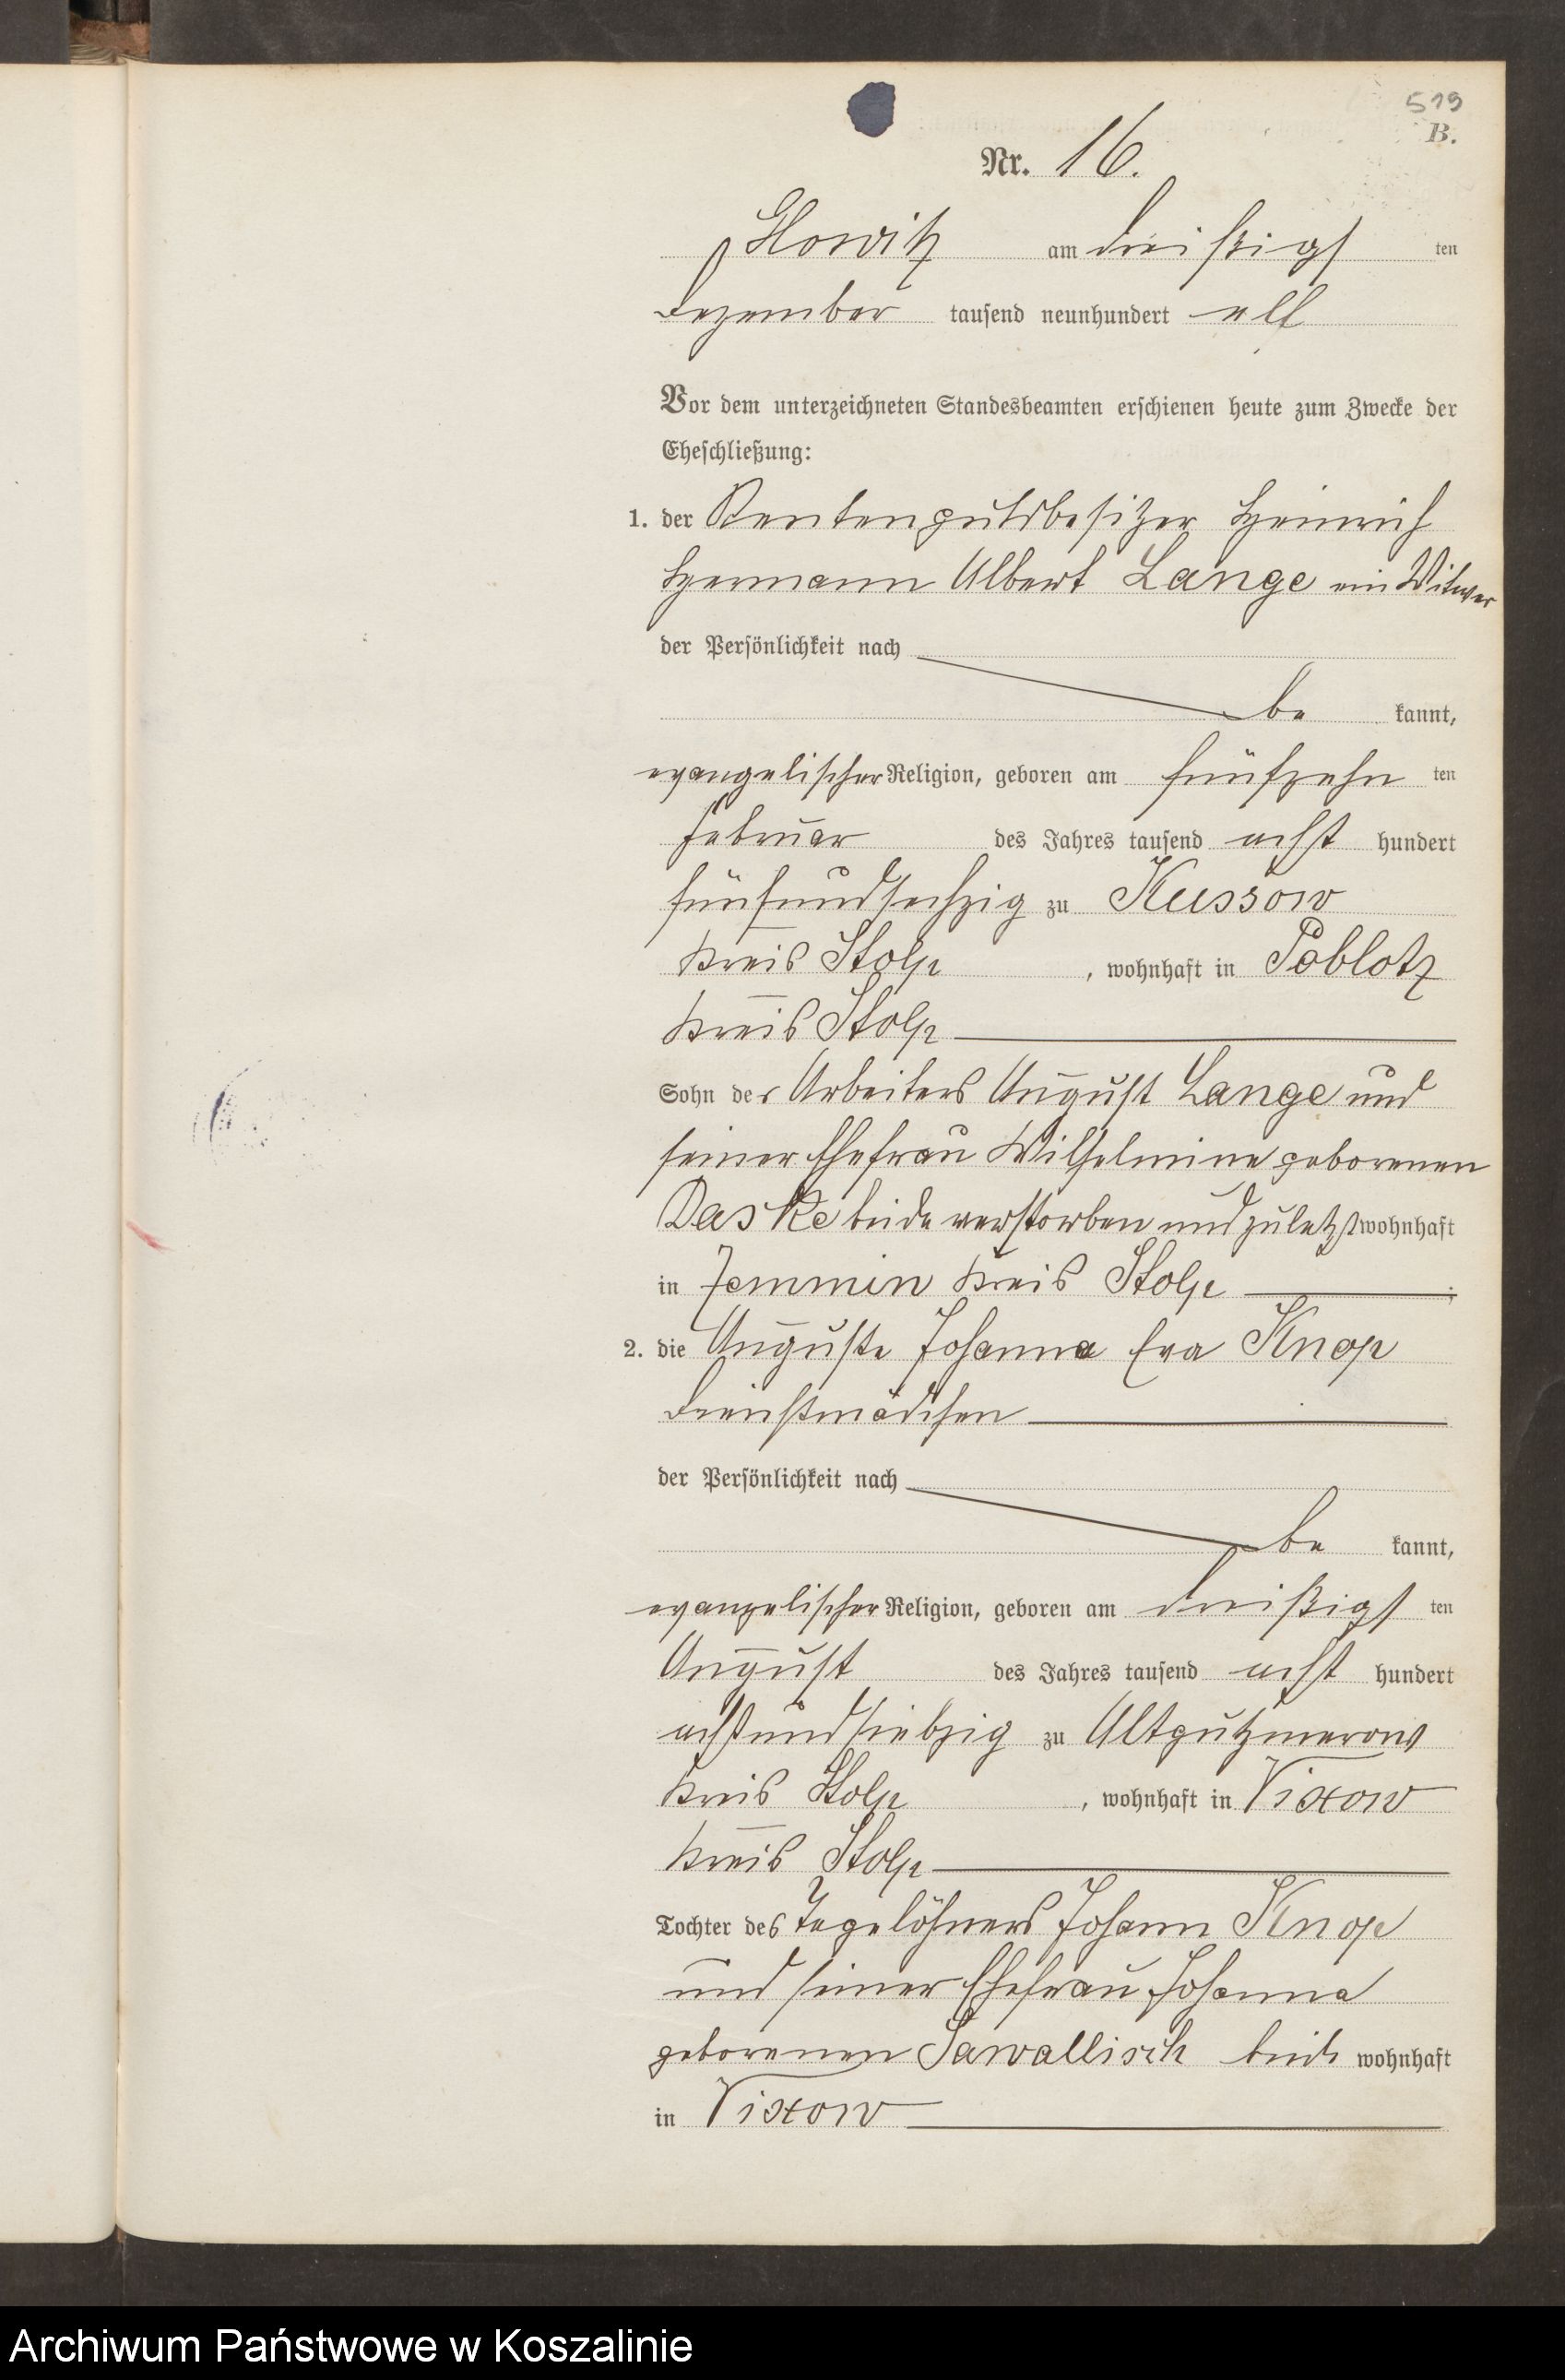 519
B.
Nr. 16.
Glowitz am dreißigs ten
Dezember tausend neunhundert elf
Vor dem unterzeichneten Standesbeamten erschienen heute zum Zwecke der
Eheschließung:
1. der Rentengutsbesitzer Heinrich
Hermann Albert Lange ein Witwer
der Persönlichkeit nach
be kannt,
evangelischer Religion, geboren am fünfzehn ten
Februar des Jahres tausend acht hundert
fünfundsechzig zu Kussow
Kreis Stolp, wohnhaft in Poblotz
Kreis Stolp
Sohn des Arbeiters August Lange und
seiner Ehefrau Wilhelmine geborenen
Daske beide verstorben und zuletzt wohnhaft
in Jemmin Kreis Stolp ;
2. die Auguste Johanna Eva Knop
Dienstmädchen
der Persönlichkeit nach
be kannt,
evangelischer Religion, geboren am dreißigs ten
August des Jahres tausend acht hundert
achtundsiebzig zu Altgutzmerow
Kreis Stolp, wohnhaft in Vixow
Kreis Stolp
Tochter des Tagelöhners Johann Knop
und seiner Ehefrau Johanna
geborenen Sawallisch beide wohnhaft
in Vixow
Archiwum Państwowe w Koszalinie